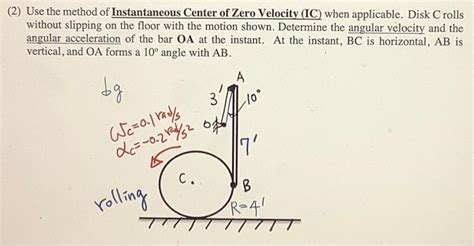 (2) Use the method of Instantaneous Center of Zero Velocity (IC) when applicable. Disk C rolls
without slipping on the floor with the motion shown. Determine the angular velocity and the
angular acceleration of the bar OA at the instant. At the instant, BC is horizontal, AB is
vertical, and OA forms a 10° angle with AB.
A
3'
10°
ωc=0.1 rad/s
O
αc=-0.2 rad/s²
7'
C.
B
rolling
R=4'